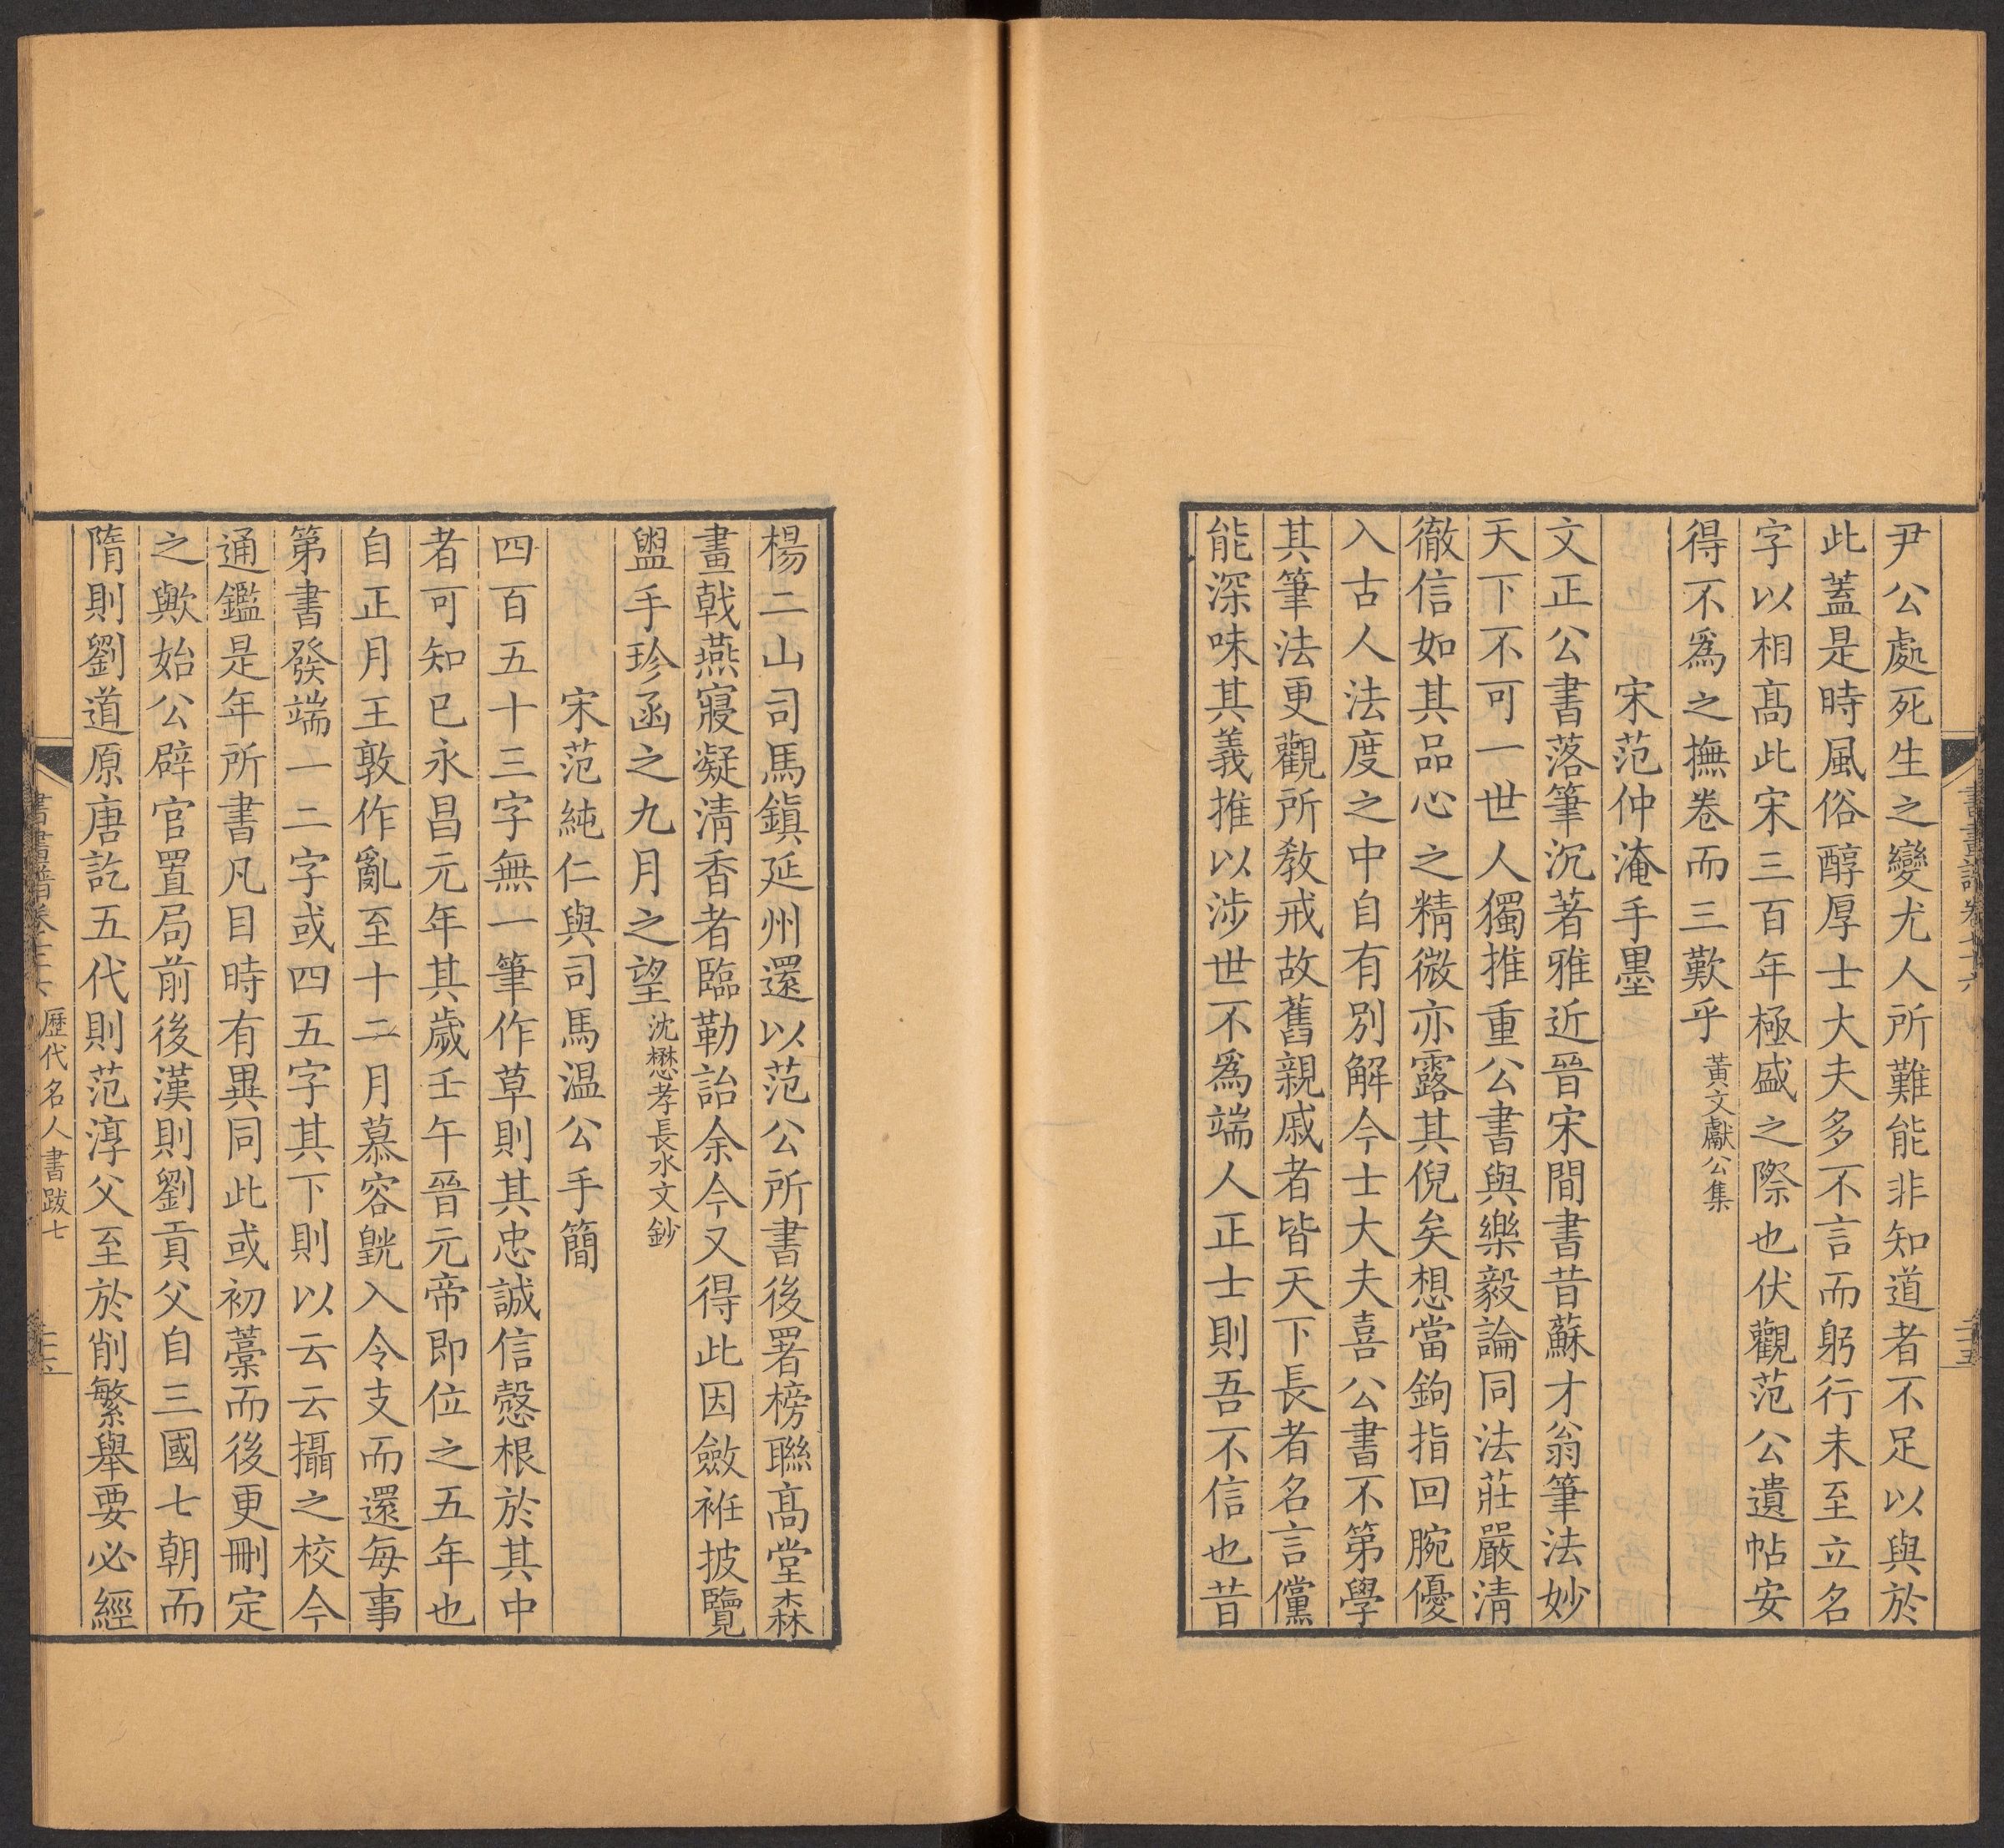 尹公處死生之變尤人所難能非知道者不足以與於
此蓋是時風俗醇厚士大夫多不言而躬行未至立名
字以相高此宋三百年極盛之際也伏觀范公遺帖安
得不爲之撫卷而三歎乎黃文獻公集
宋范仲淹手墨
文正公書落筆沉著雅近晉宋間書昔蘇才翁筆法妙
天下不可一世人獨推重公書與樂毅論同法莊嚴清
徹信如其品心之精微亦露其倪矣想當鉤指回腕優
入古人法度之中自有別解今士大夫喜公書不第學
其筆法更觀所教戒故舊親戚者皆天下長者名言儻
能深味其義推以涉世不爲端人正士則吾不信也昔
楊二山司馬鎭延州還以范公所書後署榜聯高堂森
畫戟燕寢凝清香者臨勒詒余今又得此因斂袵披覽
盥手珍函之九月之望沈懋孝長水文鈔
宋范純仁與司馬温公手簡
四百五十三字無一筆作草則其忠誠信慤根於其中
者可知已永昌元年其歲壬午晉元帝即位之五年也
自正月王敦作亂至十二月慕容皝入令支而還每事
第書發端一二字或四五字其下則以云云攝之校今
通鑑是年所書凡目時有異同此或初藁而後更刪定
之歟始公辟官置局前後漢則劉貢父自三國七朝而
隋則劉道原唐訖五代則范淳父至於削繁舉要必經
歷代名人書跋七